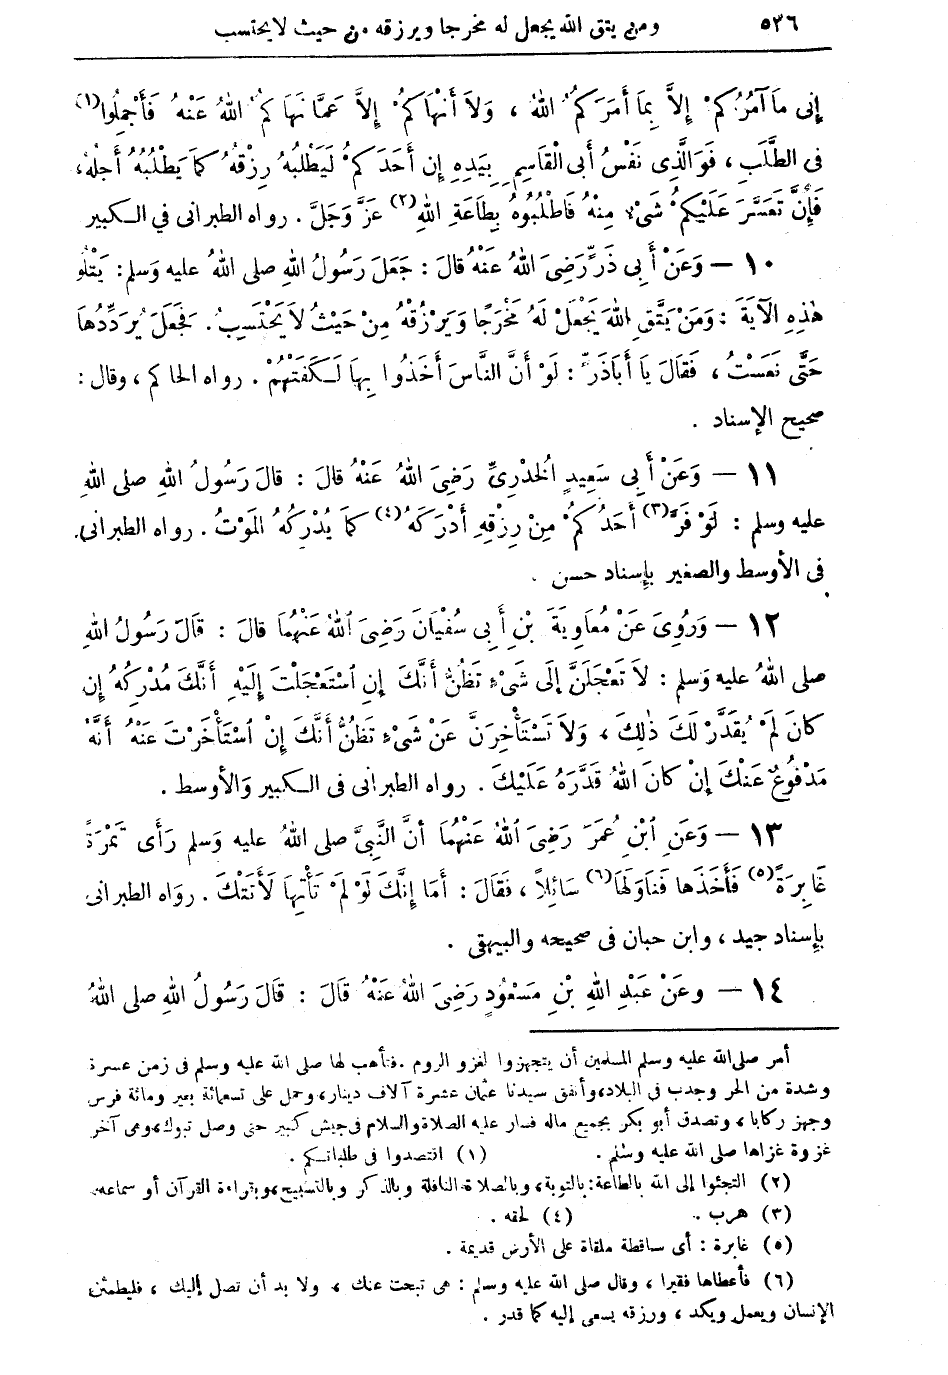 ٥٣٦ ومن يتق الله يجعل له مخرجا ويرزقه من حيث لا يحتسب
إِنى مَا آمُرُكُمْ إِلاَّ بِمَا أَمَرَكُمُ اللهُ ، وَلاَ أَنْهَاكُمْ إِلاَّ عَمَّا نَهَاكُمُ اللهُ عَنْهُ فَأَجْمِلُوا (١)
فى الطَّلَبِ ، فَوَالَّذِى نَفْسُ أَبى القَاسِمِ بِيَدِهِ إِن أَحَدَكُمْ لَيَطْلُبُهُ رِزْقُهُ كَمَا يَطْلُبُهُ أَجَلُهُ،
فَإِنْ تَعَسَّرَ عَلَيْكُمْ شَىْءٌ مِنْهُ فَاطْلُبُوهُ بِطَاعَةِ اللهِ (٢) عَزَّ وَجَلَّ . رواه الطبرانى في الكبير
١٠ – وَعَنْ أَبِى ذَرٍّ رَضِىَ اللهُ عَنْهُ قَالَ : جَعَلَ رَسُولُ اللهِ صلى اللهُ عليه وَسلم : يَتْلُو
هٰذِهِ الآيَةَ : وَمَنْ يَتَّقِ اللهَ يَجْعَلْ لَهُ مَخْرَجًا وَيَرْزُقْهُ مِنْ حَيْثُ لاَ يَحْتَسِبُ . فَجَعَلَ يُرَدِّدُهَا
حَتَّى نَعَسْتُ ، فَقَالَ يَا أَبَا ذَرٍّ : لَوْ أَنَّ النَّاسَ أَخَذُوا بِهَا لَكَفَتْهُمْ . رواه الحاكم ، وقال :
صحيح الإسناد .
١١ – وَعَنْ أَبِى سَعِيدٍ الْخدْرِىِّ رَضِىَ اللهُ عَنْهُ قَالَ : قَالَ رَسُولُ اللهِ صلى اللهِ
عليه وسلم : لَوْ فَرَّ (٣) أَحَدُكُمْ مِنْ رِزْقِهِ أَدْرَكَهُ (٤) كَمَا يُدْرِكُهُ المَوْتُ . رواه الطبرانى.
فى الأوسط والصغير بإسناد حسن .
١٢ – وَرُوِىَ عَنْ مُعَاوِيَةَ بْنِ أَبِى سُفْيَانَ رَضِىَ اللهُ عَنْهُمَا قَالَ : قَالَ رَسُولُ اللهِ
صلى اللهُ عليه وَسلم : لاَ تَعْجَلَنَّ إِلَى شَىْءٍ تَظُنُّ أَنَّكَ إِنِ اسْتَعْجَلْتَ إِلَيْهِ أَنَّكَ مُدْرِكُهُ إِن
كَانَ لَمْ يُقَدَّرْ لَكَ ذٰلِكَ ، وَلاَ تَسْتَأْخِرَنَّ عَنْ شَىْءٍ تَظُنُّ أَنَّكَ إِنْ اسْتَأْخَرْتَ عَنْهُ أَنَّهُ
مَدْفُوعٌ عَنْكَ إِنْ كَانَ اللهُ قَدَّرَهُ عَلَيْكَ . رواه الطبرانى فى الكبير وَالأوسط .
١٣ – وَعَنِ ابْنِ عُمَرَ رَضِىَ اللهُ عَنْهُمَا أَنَّ النَّبِىَّ صلى اللهُ عليه وَسلم رَأَى تَمْرَةً
غَابِرَةً (٥) فَأَخَذَهَا فَنَاوَلَهَا (٦) سَائِلاً ، فَقَالَ : أَمَا إِنَّكَ لَوْ لَمْ تَأْتِهَا لَأَتَتْكَ . روَاه الطبرانى
بإسناد جيد ، وابن حبان فى صحيحه والبيهقى .
١٤ – وَعَنْ عَبْدِ اللهِ بْنِ مَسْعُودٍ رَضِىَ اللهُ عَنْهُ قَالَ : قَالَ رَسُولُ اللهِ صلى اللهُ
أمر صلى الله عليه وسلم المسلمين أن يتجهزوا لغزو الروم . فتأهب لها صلى الله عليه وسلم فى زمن عسرة
وشدة من الحر وجدب فى البلاد، وأنفق سيدنا عثمان عشرة آلاف دينار، وحمل على تسعمائة بعير ومائة فرس
وجهز ركابا ، وتصدق أبو بكر بجميع ماله فسار عليه الصلاة والسلام فى جيش كبير حتى وصل تبوك، وهى آخر
غزوة غزاها صلى الله عليه وسلم . (١) اقتصدوا فى طلباتكم .
(٢) التجئوا إلى الله بالطاعة: بالتوبة، وبالصلاة النافلة وبالذكر وبالتسبيح، وبقراءة القرآن أو سماعه.
(٣) هرب . (٤) لحقه .
(٥) غابرة : أى ساقطة ملقاة على الأرض قديمة .
(٦) فأعطاها فقيرا ، وقال صلى الله عليه وسلم : هى تبحث عنك ، ولا بد أن تصل إليك ، فليطمئن
الإنسان ويعمل ويكد ، ورزقه يسعى إليه كما قدر .